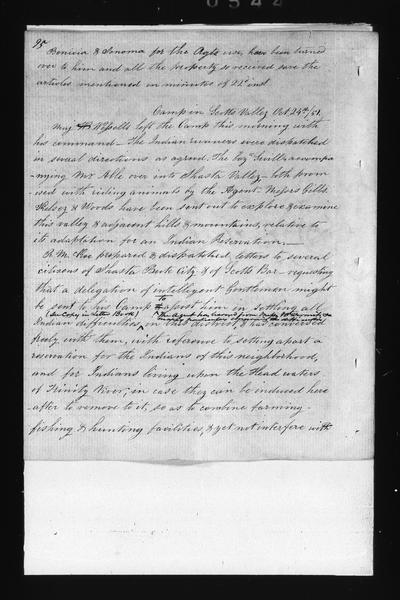 95
Benicia & Sonoma for the Agts use, have been turned
over to him and all the property so received save the
articles mentioned in minutes of 21st inst.
Camp in Scotts Valley Oct. 24th/51.
Maj Wessells left the Camp this morning with
his command — The Indian runners were dispatched
in several directions as agreed. The boy Swill accompa
nying Mr Able over into Shasta Valley — both prom
ised with riding animals by the Agent. Messrs Gibbs
Kelsey & Woods have been sent out to explore & examine
this valley & adjacent hills & mountains, relative to
its adaptation for an Indian Reservation. —
R. M. Kee prepared & dispatched letters to several
citizens of Shasta Butte City & of Scotts Bar requesting
that a delegation of intelligent Gentlemen might
be sent to his Camp to assist him in settling all
(See Copy in Letter Book)
Indian difficulties in this district, & has conversed
freely with them, with reference to setting apart a
reservation for the Indians of this neighborhood,
and for Indians living upon the Head waters
of Trinity River, in case they can be induced here
after to remove to it, so as to combine farming
fishing & hunting facilities, & yet not interfere with